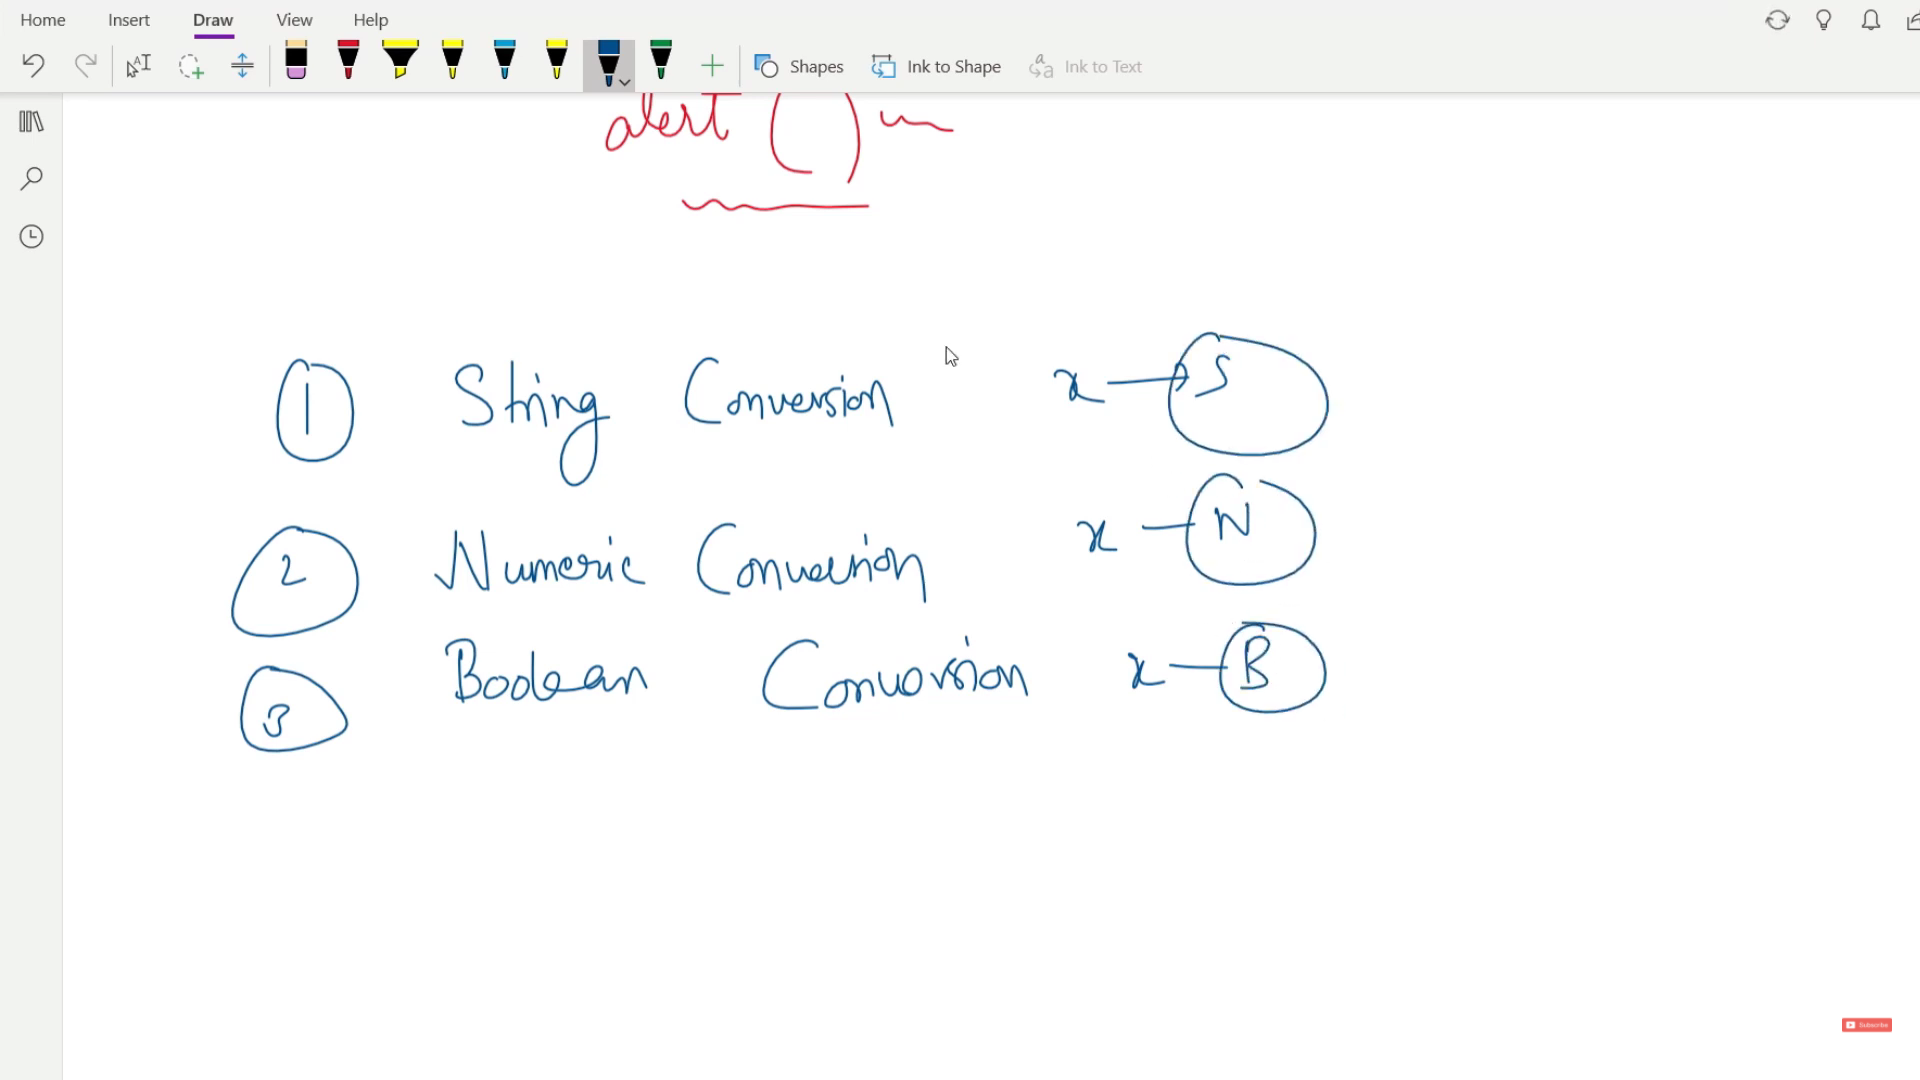 Home Insert Draw View Help
Shapes Ink to Shape Ink to Text
alert ( )
1 String Conversion x S
2 Numeric Conversion x N
3 Boolean Conversion x B
Subscribe